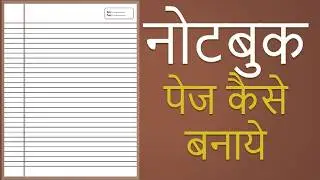 नोटबुक
पेज कैसे
बनाये